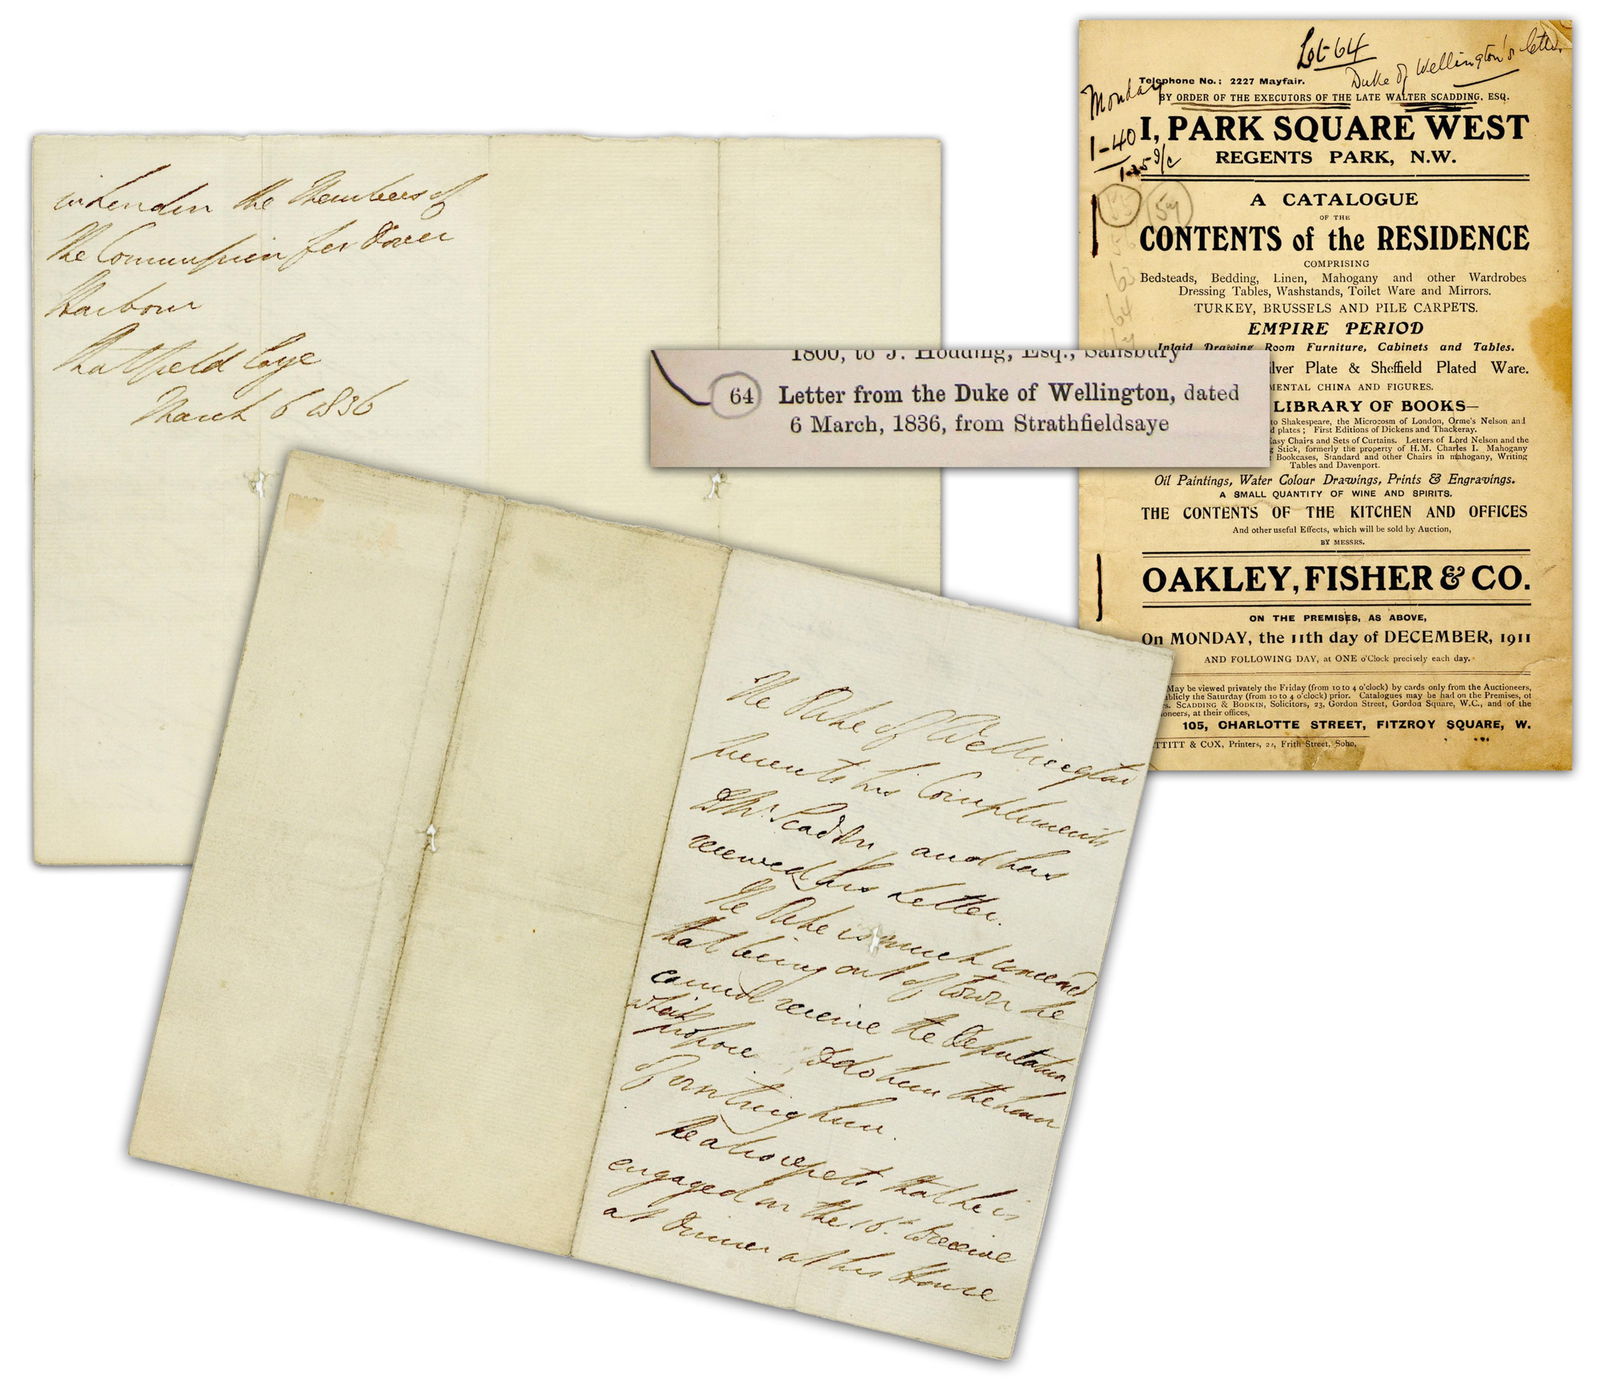 The Duke of Wellington
presents his Compliments
to Mr. Scadding and has
received his Letter.
The Duke is much concerned
that being out of town he
cannot receive the Deputation
which
propose, & do him the honor
of visiting him.
He also regrets that he is
engaged on the to receive
at Dinner at his House
in London the Members of
the Commission for Dover
Harbour
Strathfield Saye
March 6 1836
1800, to J. Hodding, Esq., Salisbury
64 Letter from the Duke of Wellington, dated
6 March, 1836, from Strathfieldsaye
Lot 64
Duke of Wellington's letter
Telephone No.: 2227 Mayfair.
Monday
BY ORDER OF THE EXECUTORS OF THE LATE WALTER SCADDING, ESQ.
1-40
1, PARK SQUARE WEST
REGENTS PARK, N.W.
A CATALOGUE
OF THE
CONTENTS of the RESIDENCE
COMPRISING
Bedsteads, Bedding, Linen, Mahogany and other Wardrobes
Dressing Tables, Washstands, Toilet Ware and Mirrors.
63
64
TURKEY, BRUSSELS AND PILE CARPETS.
EMPIRE PERIOD
Inlaid Drawing Room Furniture, Cabinets and Tables.
ilver Plate & Sheffield Plated Ware.
MENTAL CHINA AND FIGURES.
LIBRARY OF BOOKS—
to Shakespeare, the Microcosm of London, Orme's Nelson and
d plates; First Editions of Dickens and Thackeray.
Easy Chairs and Sets of Curtains. Letters of Lord Nelson and the
g Stick, formerly the property of H.M. Charles I. Mahogany
Bookcases, Standard and other Chairs in mahogany, Writing
Tables and Davenport.
Oil Paintings, Water Colour Drawings, Prints & Engravings.
A SMALL QUANTITY OF WINE AND SPIRITS.
THE CONTENTS OF THE KITCHEN AND OFFICES
And other useful Effects, which will be sold by Auction,
BY MESSRS.
OAKLEY, FISHER & CO.
ON THE PREMISES, AS ABOVE,
On MONDAY, the 11th day of DECEMBER, 1911
AND FOLLOWING DAY, at ONE o'Clock precisely each day.
May be viewed privately the Friday (from 10 to 4 o'clock) by cards only from the Auctioneers,
ublicly the Saturday (from 10 to 4 o'clock) prior. Catalogues may be had on the Premises, of
rs. SCADDING & BODKIN, Solicitors, 23, Gordon Street, Gordon Square, W.C., and of the
ioneers, at their offices,
105, CHARLOTTE STREET, FITZROY SQUARE, W.
TTITT & COX, Printers, 22, Frith Street, Soho,